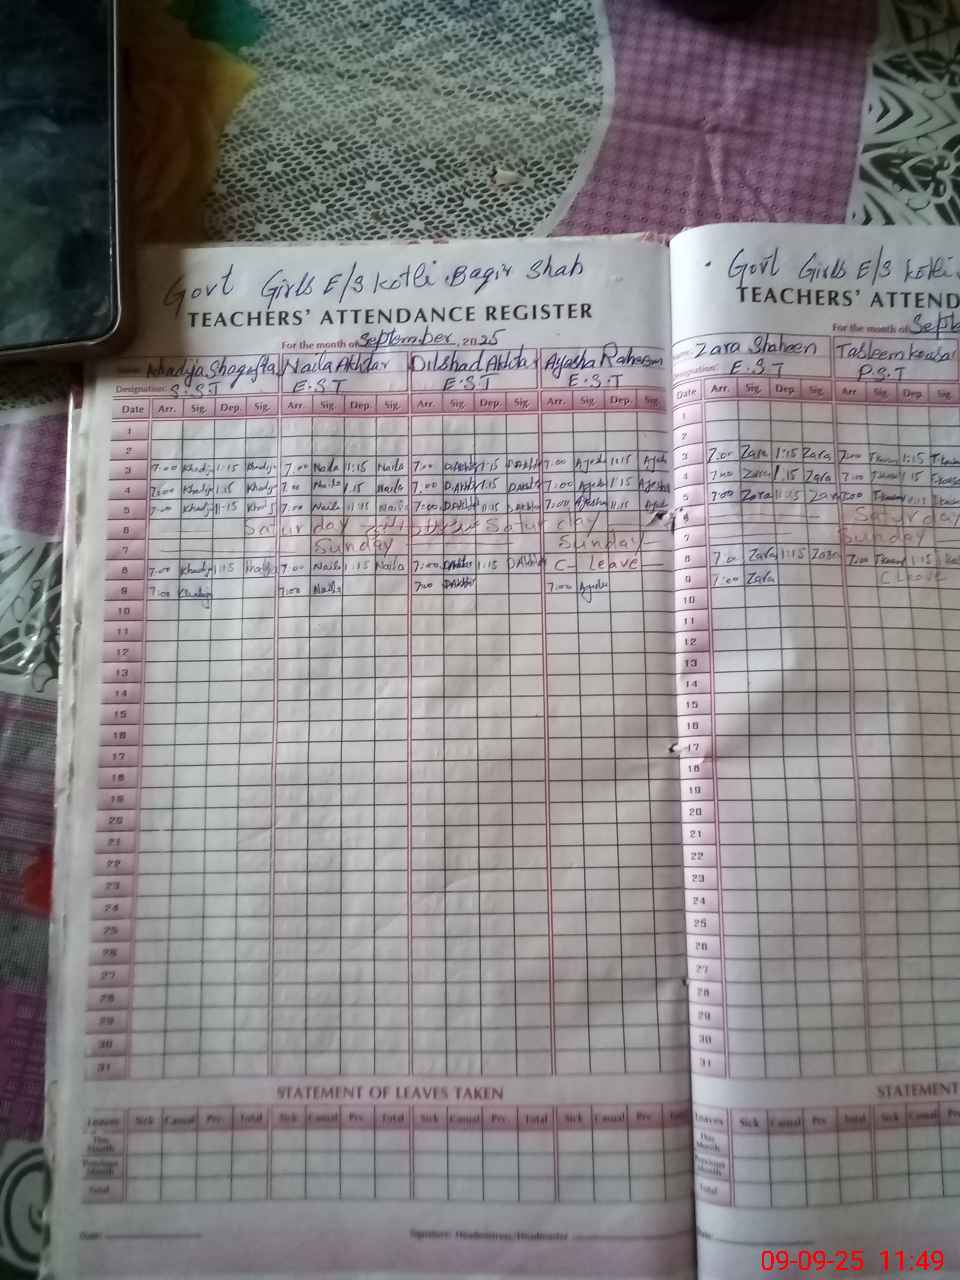 Govt Girls E/S Kotli Baqir Shah
TEACHERS' ATTENDANCE REGISTER
For the month of September, 2025
Name: Khadija Shagufta Naila Akhtar Dilshad Akhtar Ayesha Raheem
Designation: S.S.T E.S.T E.S.T E.S.T
Date Arr. Sig. Dep. Sig. Arr. Sig. Dep. Sig. Arr. Sig. Dep. Sig. Arr. Sig. Dep. Sig.
1
2
3 7:00 Khadija 1:15 Khadija 7:00 Naila 1:15 Naila 7:00 D.Akhtar 1:15 D.Akhtar 7:00 Ayesha 1:15 Ayesha
4 7:00 Khadija 1:15 Khadija 7:00 Naila 1:15 Naila 7:00 D.Akhtar 1:15 D.Akhtar 7:00 Ayesha 1:15 Ayesha
5 7:00 Khadija 1:15 7:00 Naila 1:15 Naila 7:00 D.Akhtar 1:15 D.Akhtar 7:00 Ayesha 1:15
6 Saturday Saturday
7 Sunday Sunday
8 7:00 Khadija 1:15 Khadija 7:00 Naila 1:15 Naila 7:00 D.Akhtar 1:15 D.Akhtar C- Leave
9 7:00 Khadija 7:00 Naila 7:00 D.Akhtar 7:00 Ayesha
10
11
12
13
14
15
16
17
18
19
20
21
22
23
24
25
26
27
28
29
30
31
STATEMENT OF LEAVES TAKEN
Leaves Sick Casual Prv. Total Sick Casual Prv. Total Sick Casual Prv. Total Sick Casual Prv. Total
This Month
Previous Month
Total
Date: Signature: Headmistress/Headmaster
Govt Girls E/S Kotli
TEACHERS' ATTEND
For the month of Septe
Name: Zara Shaheen Tasleem Kousar
Designation: E.S.T P.S.T
Date Arr. Sig. Dep. Sig. Arr Sig. Dep.
1
2
3 7:00 Zara 1:15 Zara 7:00 1:15
4 7:00 Zara 1:15 Zara 7:00 1:15
5 7:00 Zara 1:15 Zara 7:00 1:15
6 Saturday
7 Sunday
8 7:00 Zara 1:15 Zara 7:00 1:15
9 7:00 Zara C Leave
10
11
12
13
14
15
16
17
18
19
20
21
22
23
24
25
26
27
28
29
30
31
STATEMENT
Leaves Sick Casual Prv. Total Sick Casual Prv.
This Month
Previous Month
Total
Date:
09-09-25 11:49